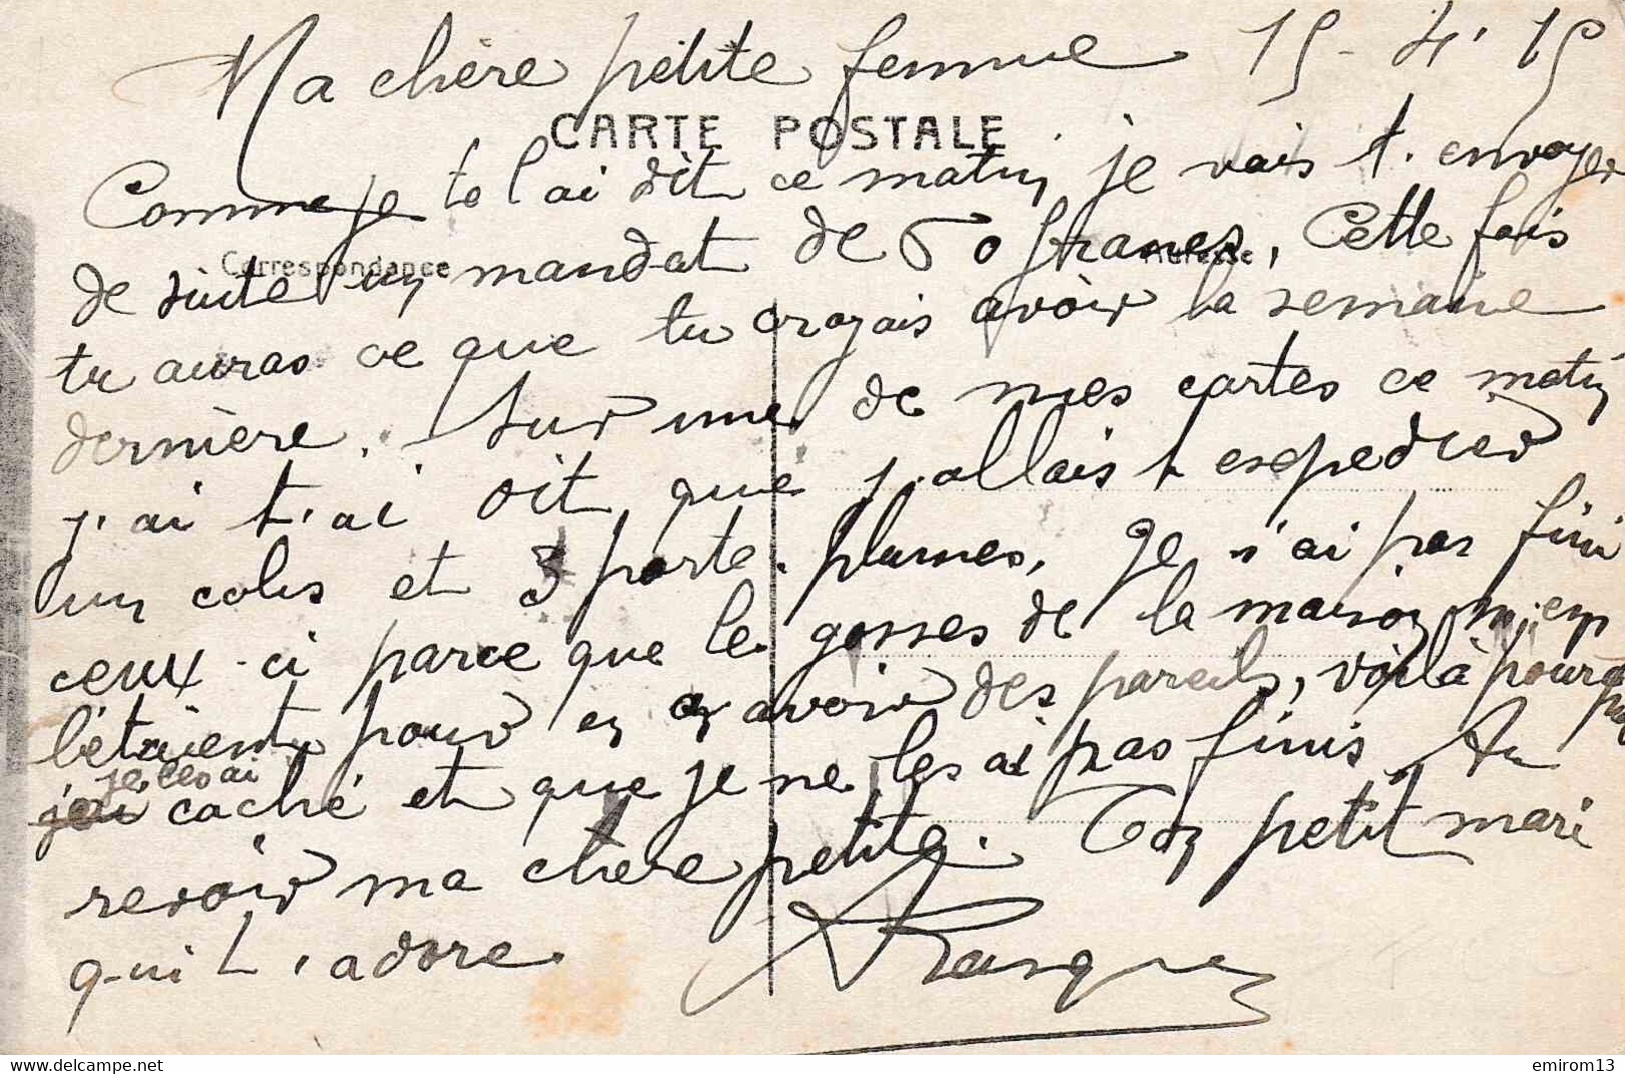 Ma chère petite femme 15-4-15
CARTE POSTALE
Comme je te l'ai dit ce matin je vais t'envoyer
Correspondance
Adresse
de suite un mandat de 50 francs, Cette fois
tu auras ce que tu croyais avoir la semaine
dernière. Sur une de mes cartes ce matin
j'ai t'ai dit que j'allais t expedier
un colis et 3 porte-plumes. Je n'ai pas fini
ceux-ci parce que les gosses de la maison m'emp
bétaient pour en avoir des pareils, voilà pourquoi
je les ai
j'ai caché et que je ne les ai pas finis. Au
revoir ma chère petite. Ton petit mari
qui t'adore
delcampe.net
emirom13